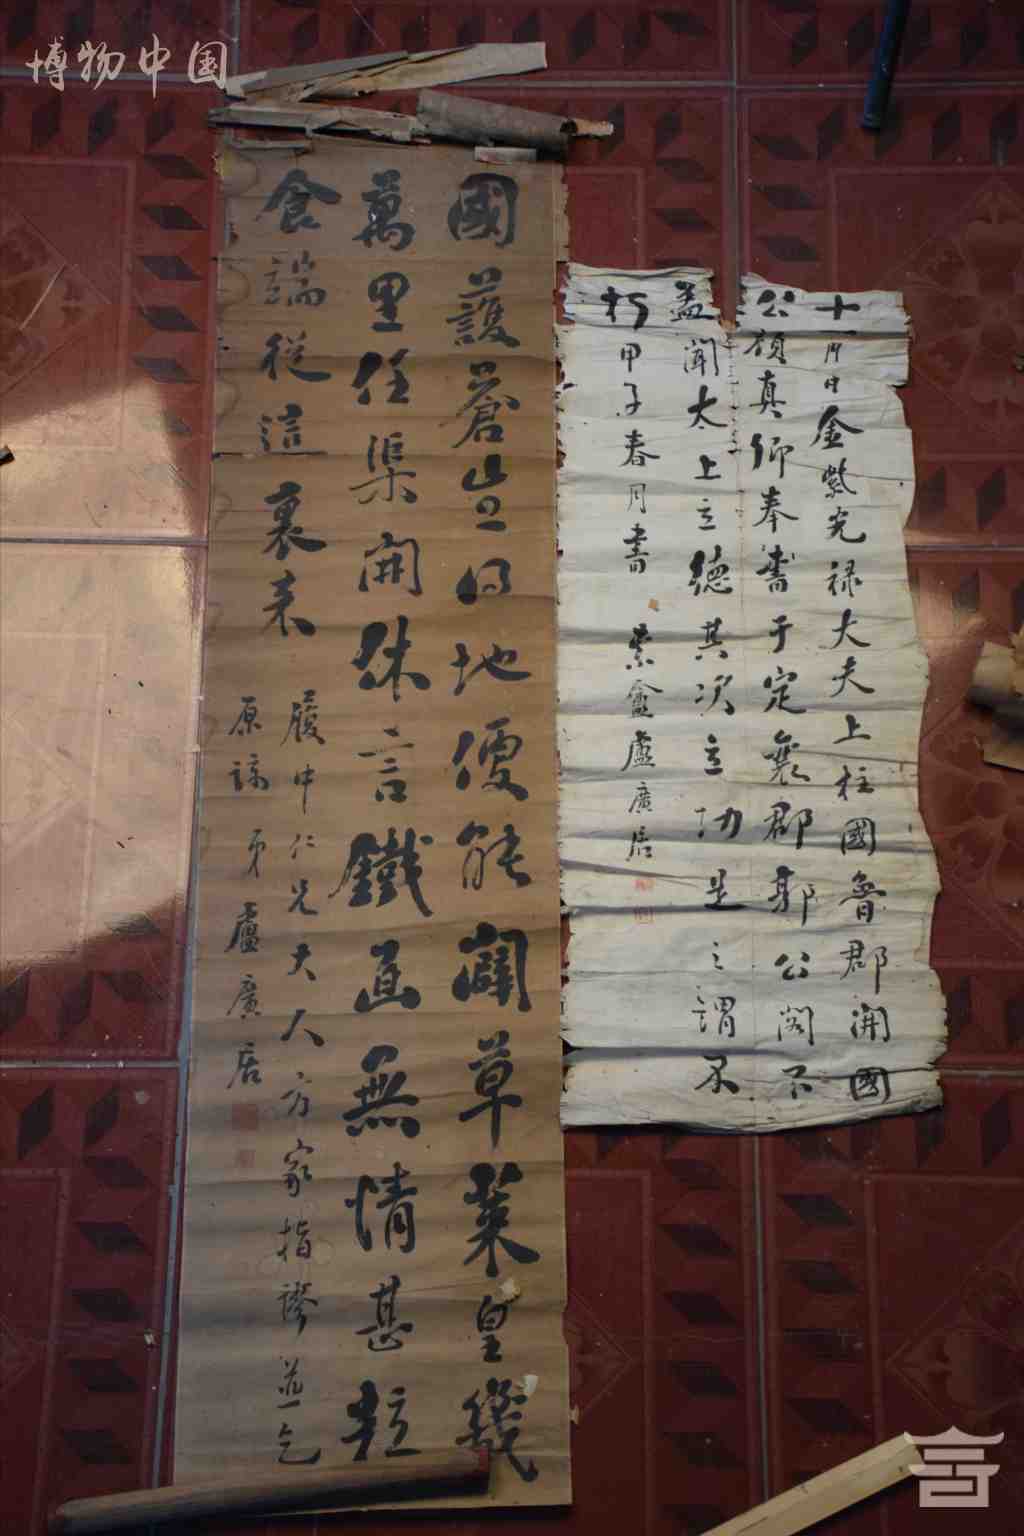 博物中国
國護蒼豈得地便能闢草萊皇畿
萬里任渠開休言鐵面無情甚粒
食端從這裏来
履中仁兄大人方家指謬並乞
原諒 弟盧廣居
十一月日金紫光禄大夫上柱國魯郡開國
公顔真卿奉書于定襄郡郭公閣下
蓋聞太上立德其次立功是之謂不
朽甲子春月書 盦盧廣居